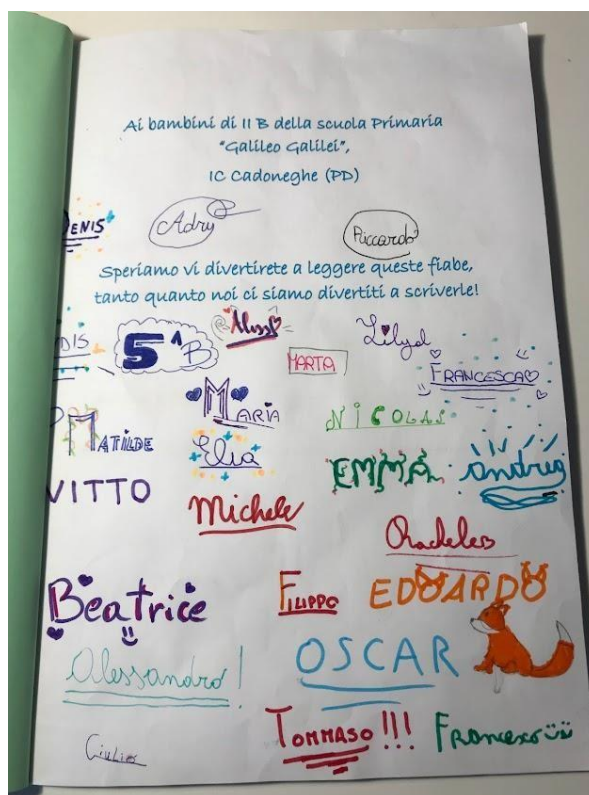 Ai bambini di II B della scuola Primaria
"Galileo Galilei",
IC Cadoneghe (PD)
ENIS
Adry
Riccardo
Speriamo vi divertirete a leggere queste fiabe,
tanto quanto noi ci siamo divertiti a scriverle!
DIS
5ᴬB
MARTA
FRANCESCA
MARIA
NICOLAS
MATILDE
Elia
EMMA
andrea
VITTO
Michele
Beatrice
FILIPPO
EDOARDO
Alessandro!
OSCAR
TOMMASO!!!
Francesco